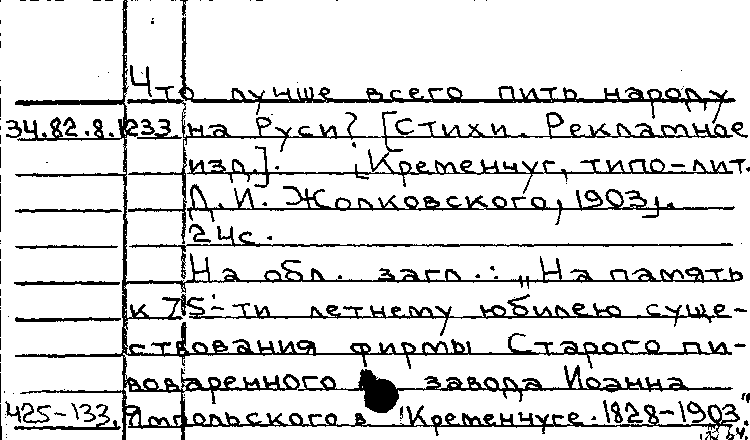 Что лучше всего пить народу
34.82.8.1233. на Руси? [Стихи. Рекламное
изд.]. [Кременчуг, типо-лит.
Д. И. Жолковского, 1903].
24с.
На обл. загл.: "На память
к 75-ти летнему юбилею суще-
ствования фирмы Старого пи-
воваренного завода Иоанна
425-133. Ямпольского в Кременчуге. 1828-1903"